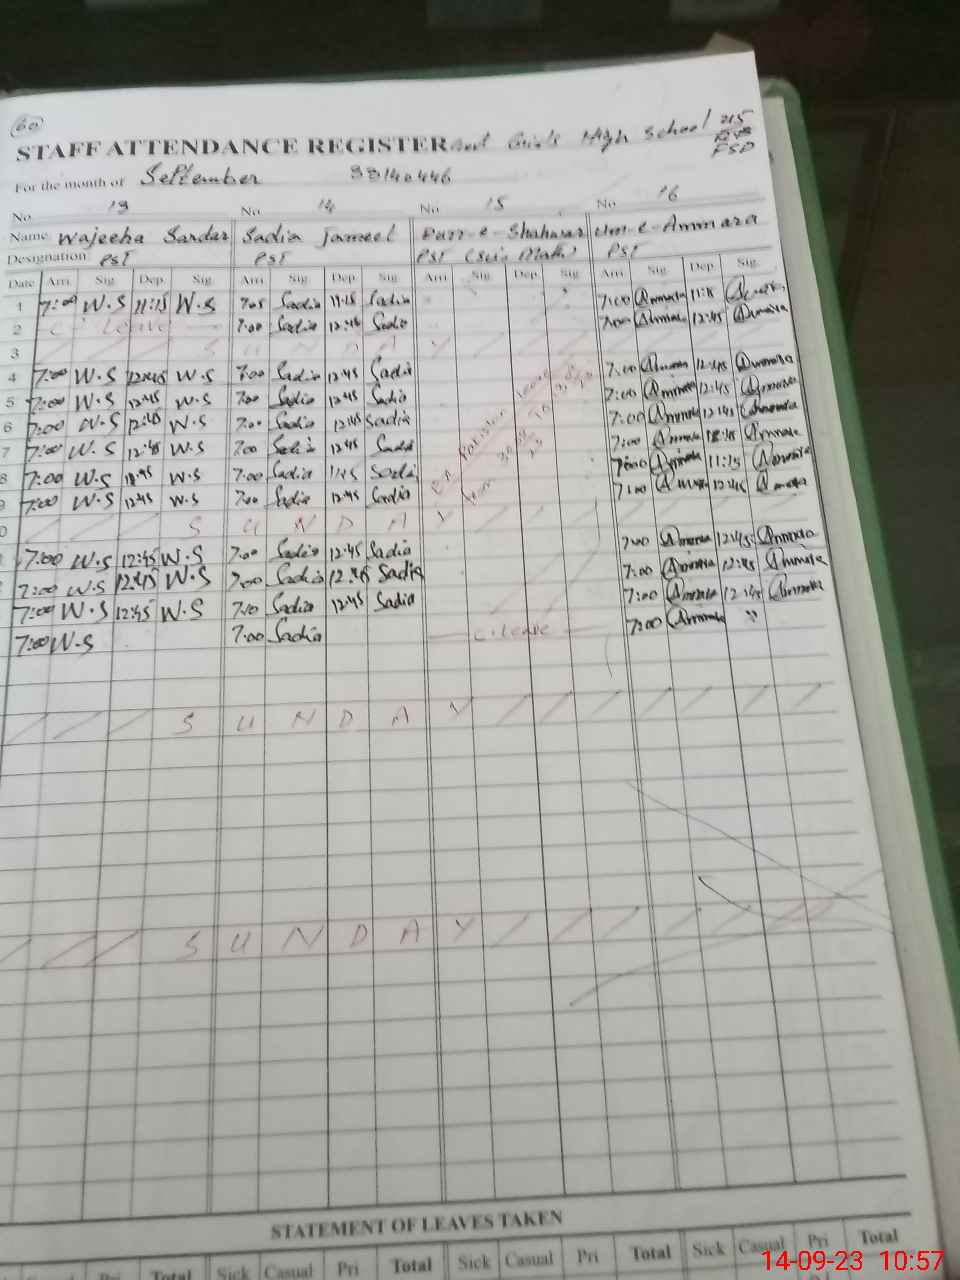 60
STAFF ATTENDANCE REGISTER Govt Girls High School 215
FSD
For the month of September 33140446
No 13 No. 14 No. 15 No 16
Name Wajeeha Sardar Sadia Jameel Durr-e-Shahwar Um-e-Ammara
Designation PST PST PST (Sci Math) PST
Date Arri Sig. Dep. Sig. Arri Sig. Dep. Sig. Arri Sig. Dep. Sig. Arri Sig. Dep Sig.
1 7:00 W.S 11:15 W.S 7:05 Sadia 11:15 Sadia 7:00 Ammara 11:15
2 C. Leave 7:00 Sadia 12:45 Sadia 7:00 Ammara 12:45 Ammara
3 S U N D A Y
4 7:00 W.S 12:45 W.S 7:00 Sadia 12:45 Sadia 7:00 Ammara 12:45 Ammara
5 7:00 W.S 12:45 W.S 7:00 Sadia 12:45 Sadia 7:00 Ammara 12:45 Ammara
6 7:00 W.S 12:45 W.S 7:00 Sadia 12:45 Sadia 7:00 Ammara 12:45 Ammara
7 7:00 W.S 12:45 W.S 7:00 Sadia 12:45 Sadia 7:00 Ammara 12:45 Ammara
8 7:00 W.S W.S 7:00 Sadia Sadia 7:00 Ammara 11:15 Ammara
9 7:00 W.S 12:45 W.S 7:00 Sadia 12:45 Sadia 7:00 Ammara 12:45 Ammara
Ex Pakistan leave
From To
0 S U N D A Y
7:00 W.S 12:45 W.S 7:00 Sadia 12:45 Sadia 7:00 Ammara 12:45 Ammara
7:00 W.S 12:45 W.S 7:00 Sadia 12:45 Sadia 7:00 Ammara 12:45 Ammara
7:00 W.S 12:45 W.S 7:10 Sadia 12:45 Sadia 7:00 Ammara 12:45 Ammara
7:00 W.S 7:00 Sadia C. leave 7:00 Ammara
S U N D A Y
S U N D A Y
STATEMENT OF LEAVES TAKEN
Casual Pri Total Sick Casual Pri Total Sick Casual Pri Total Sick Casual Pri Total
14-09-23 10:57